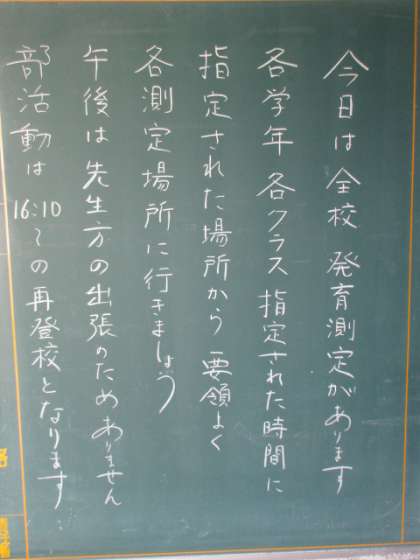 今日は全校発育測定があります
各学年各クラス指定された時間に
指定された場所から要領よく
各測定場所に行きましょう
午後は先生方の出張のためありません
部活動は16:10〜の再登校となります